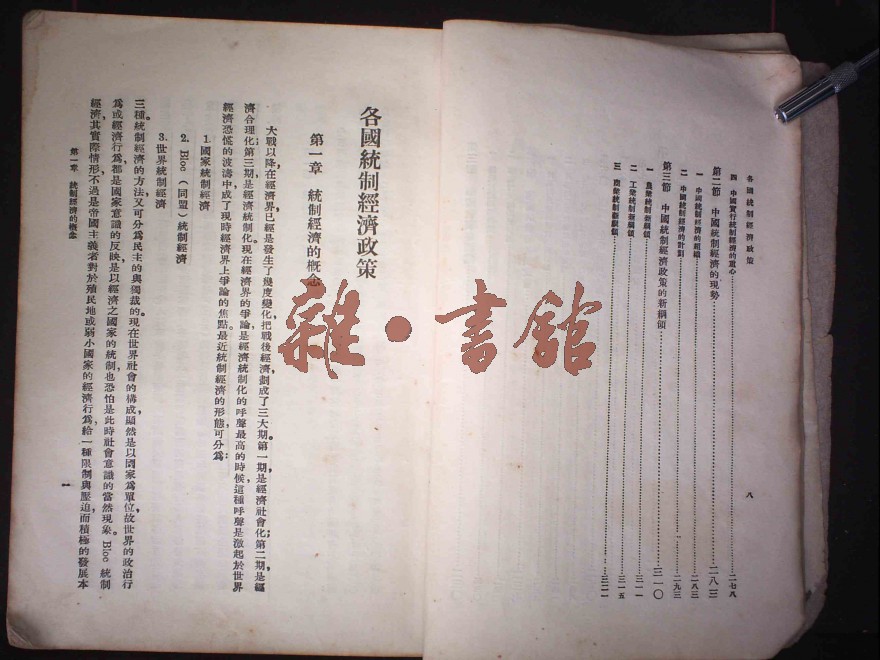 各國統制經濟政策
八
四　中國實行統制經濟的重心……二七八
第二節　中國統制經濟的現勢……二八三
一　中國統制經濟的組織……二八三
二　中國統制經濟的計劃……二九三
第三節　中國統制經濟政策的新綱領……三一〇
一　農業統制新綱領……三一一
二　工業統制新綱領……三一五
三　商業統制新綱領……三二一
各國統制經濟政策
第一章　統制經濟的概念
大戰以降在經濟界，已經是發生了幾度變化，把戰後經濟劃成了三大期。第一期是經濟社會化；第二期是經
濟合理化；第三期是經濟統制化。現在經濟界的爭論，是經濟統制化的呼聲最高的時候，這種呼聲是激起於世界
經濟恐慌的波濤中，成了現時經濟界上爭論的焦點。最近統制經濟的形態，可分爲：
1. 國家統制經濟
2. Bloc（同盟）統制經濟
3. 世界統制經濟
三種。統制經濟的方法又可分爲民主的與獨裁的。現在世界社會的構成，顯然是以國家爲單位，故世界的政治行
爲或經濟行爲，都是國家意識的反映，是以經濟之國家的統制，也恐怕是此時社會意識的當然現象。Bloc 統制
經濟，其實際情形，不過是帝國主義者對於殖民地或弱小國家的經濟行爲，給一種限制與壓迫，而積極的發展本
第一章　統制經濟的概念
一
雜·書館